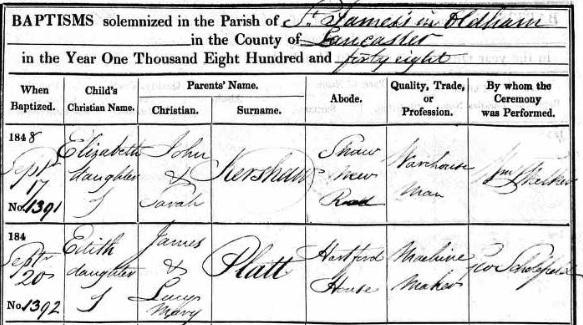 BAPTISMS solemnized in the Parish of St. James's in Oldham
in the County of Lancaster
in the Year One Thousand Eight Hundred and forty eight
When Baptized.
Child's Christian Name.
Parents' Name.
Christian.
Surname.
Abode.
Quality, Trade, or Profession.
By whom the Ceremony was Performed.
1848
Sept
17
No. 1391
Elizabeth
daughter
of
John
&
Sarah
Kershaw
Shaw
New
Road
Warehouse
Man
184
Sept
20
No. 1392
Edith
daughter
of
James
&
Lucy
Mary
Platt
Hartford
House
Machine
Maker
Geo Scholefield